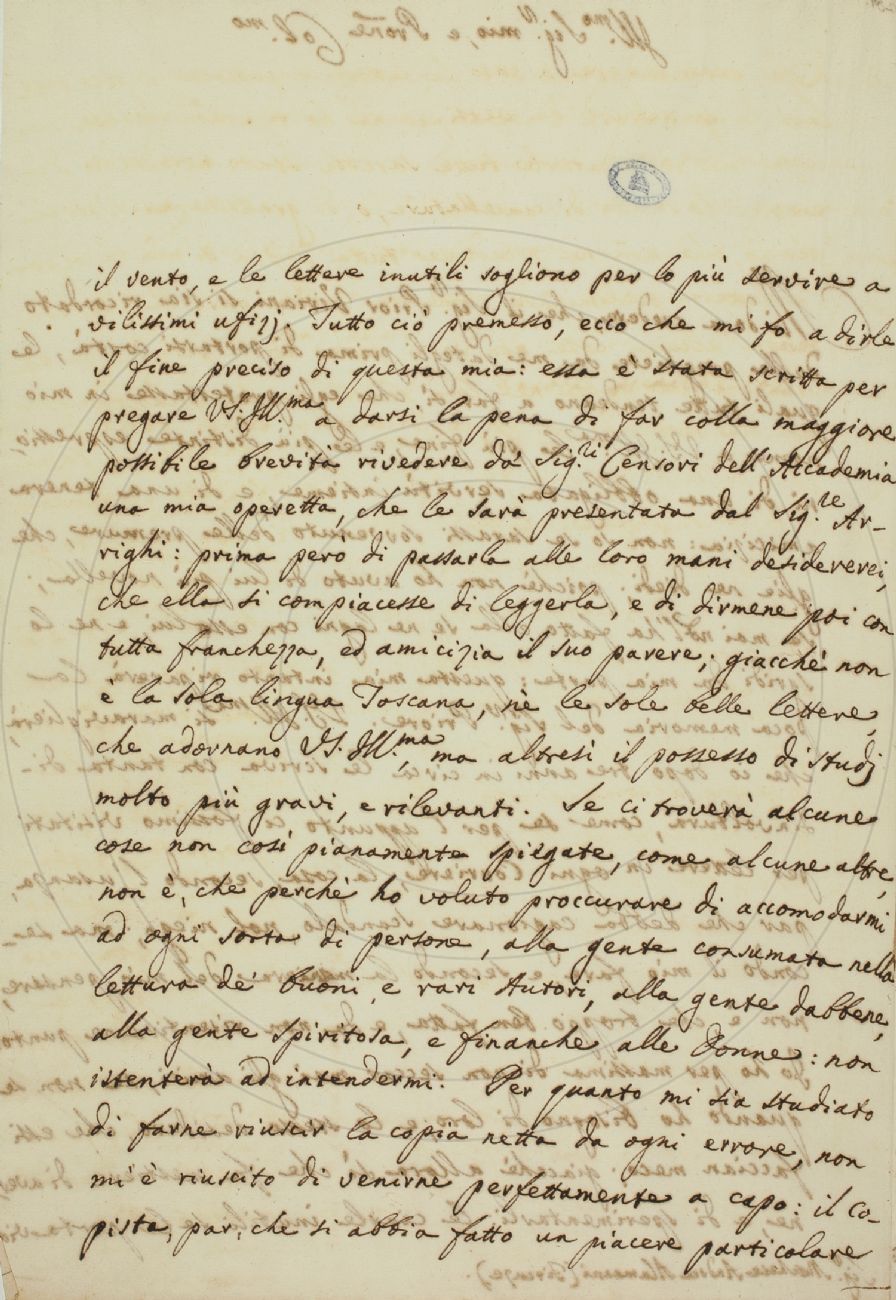 il vento, e le lettere inutili sogliono per lo più servire a
vilissimi ufizj. Tutto ciò premesso, ecco che mi fo a dirle
il fine preciso di questa mia: essa è stata scritta per
pregare VS. Ill.ma a darsi la pena di far colla maggiore
possibile brevità rivedere da' Sig.ri Censori dell'Accademia
una mia operetta, che le sarà presentata dal Sig.re Ar-
righi: prima però di passarla alle loro mani desidererei,
che ella si compiacesse di leggerla, e di dirmene poi con
tutta franchezza, ed amicizia il suo parere; giacchè non
è la sola lingua Toscana, nè le sole belle lettere,
che adornano VS. Ill.ma, ma altresì il possesso di studj
molto più gravi, e rilevanti. Se ci troverà alcune
cose non così pianamente spiegate, come alcune altre,
non è, che perchè ho voluto proccurare di accomodarmi
ad ogni sorta di persone, alla gente consumata nella
lettura de' buoni, e rari Autori, alla gente dabbene,
alla gente spiritosa, e finanche alle Donne: non
istenterà ad intendermi. Per quanto mi sia studiato
di farne riuscir la copia netta da ogni errore, non
mi è riuscito di venirne perfettamente a capo: il co-
pista, par, che si abbia fatto un piacere particolare